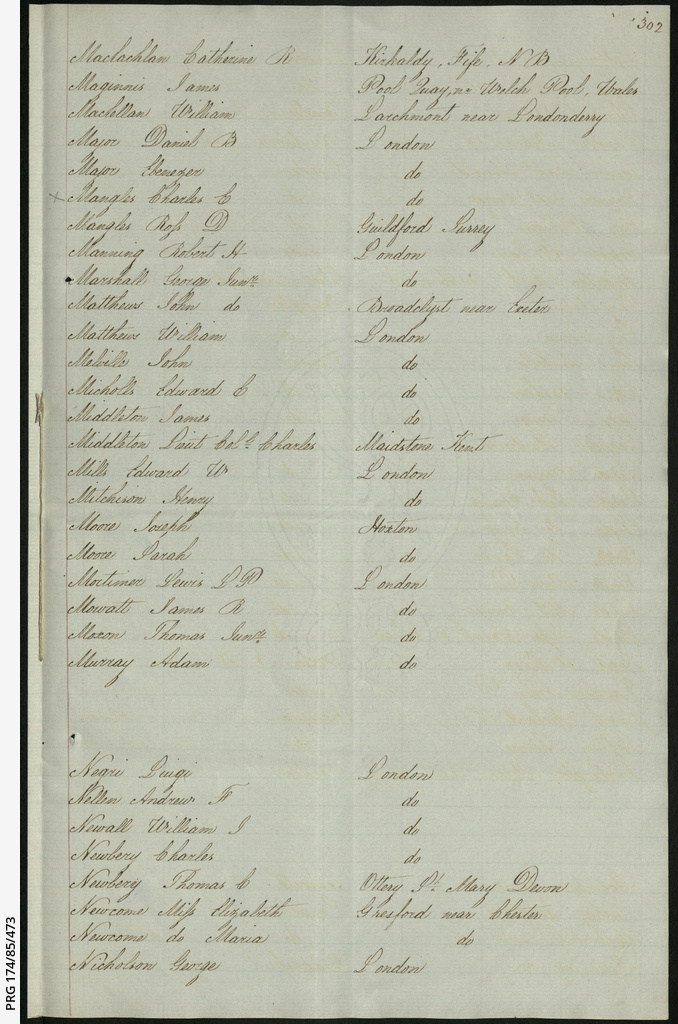 302
Maclachlan Catherine R Kirkaldy, Fife, N B
Maginnis James Pool Quay, nr Welch Pool, Wales
Maclellan William Larchmont near Londonderry
Major Daniel B London
Major Ebenezer do
x Mangles Charles E do
Mangles Ross D Guildford Surrey
Manning Robert H London
Marshall George Junr. do
Matthews John do Broadclyst near Exeter
Matthews William London
Melville John do
Micholls Edward E do
Middleton James do
Middleton Lieut Coll. Charles Maidstone Kent
Mills Edward W London
Mitchison Henry do
Moore Joseph Hoxton
Moore Sarah do
Mortimer Lewis L R London
Mowatt James R do
Moxon Thomas Junr. do
Murray Adam do
Negri Luigi London
Nellen Andrew F do
Newall William J do
Newbery Charles do
Newbery Thomas C Ottery St. Mary Devon
Newcome Miss Elizabeth Gresford near Chester
Newcome do Maria do
Nicholson George London
PRG 174/85/473